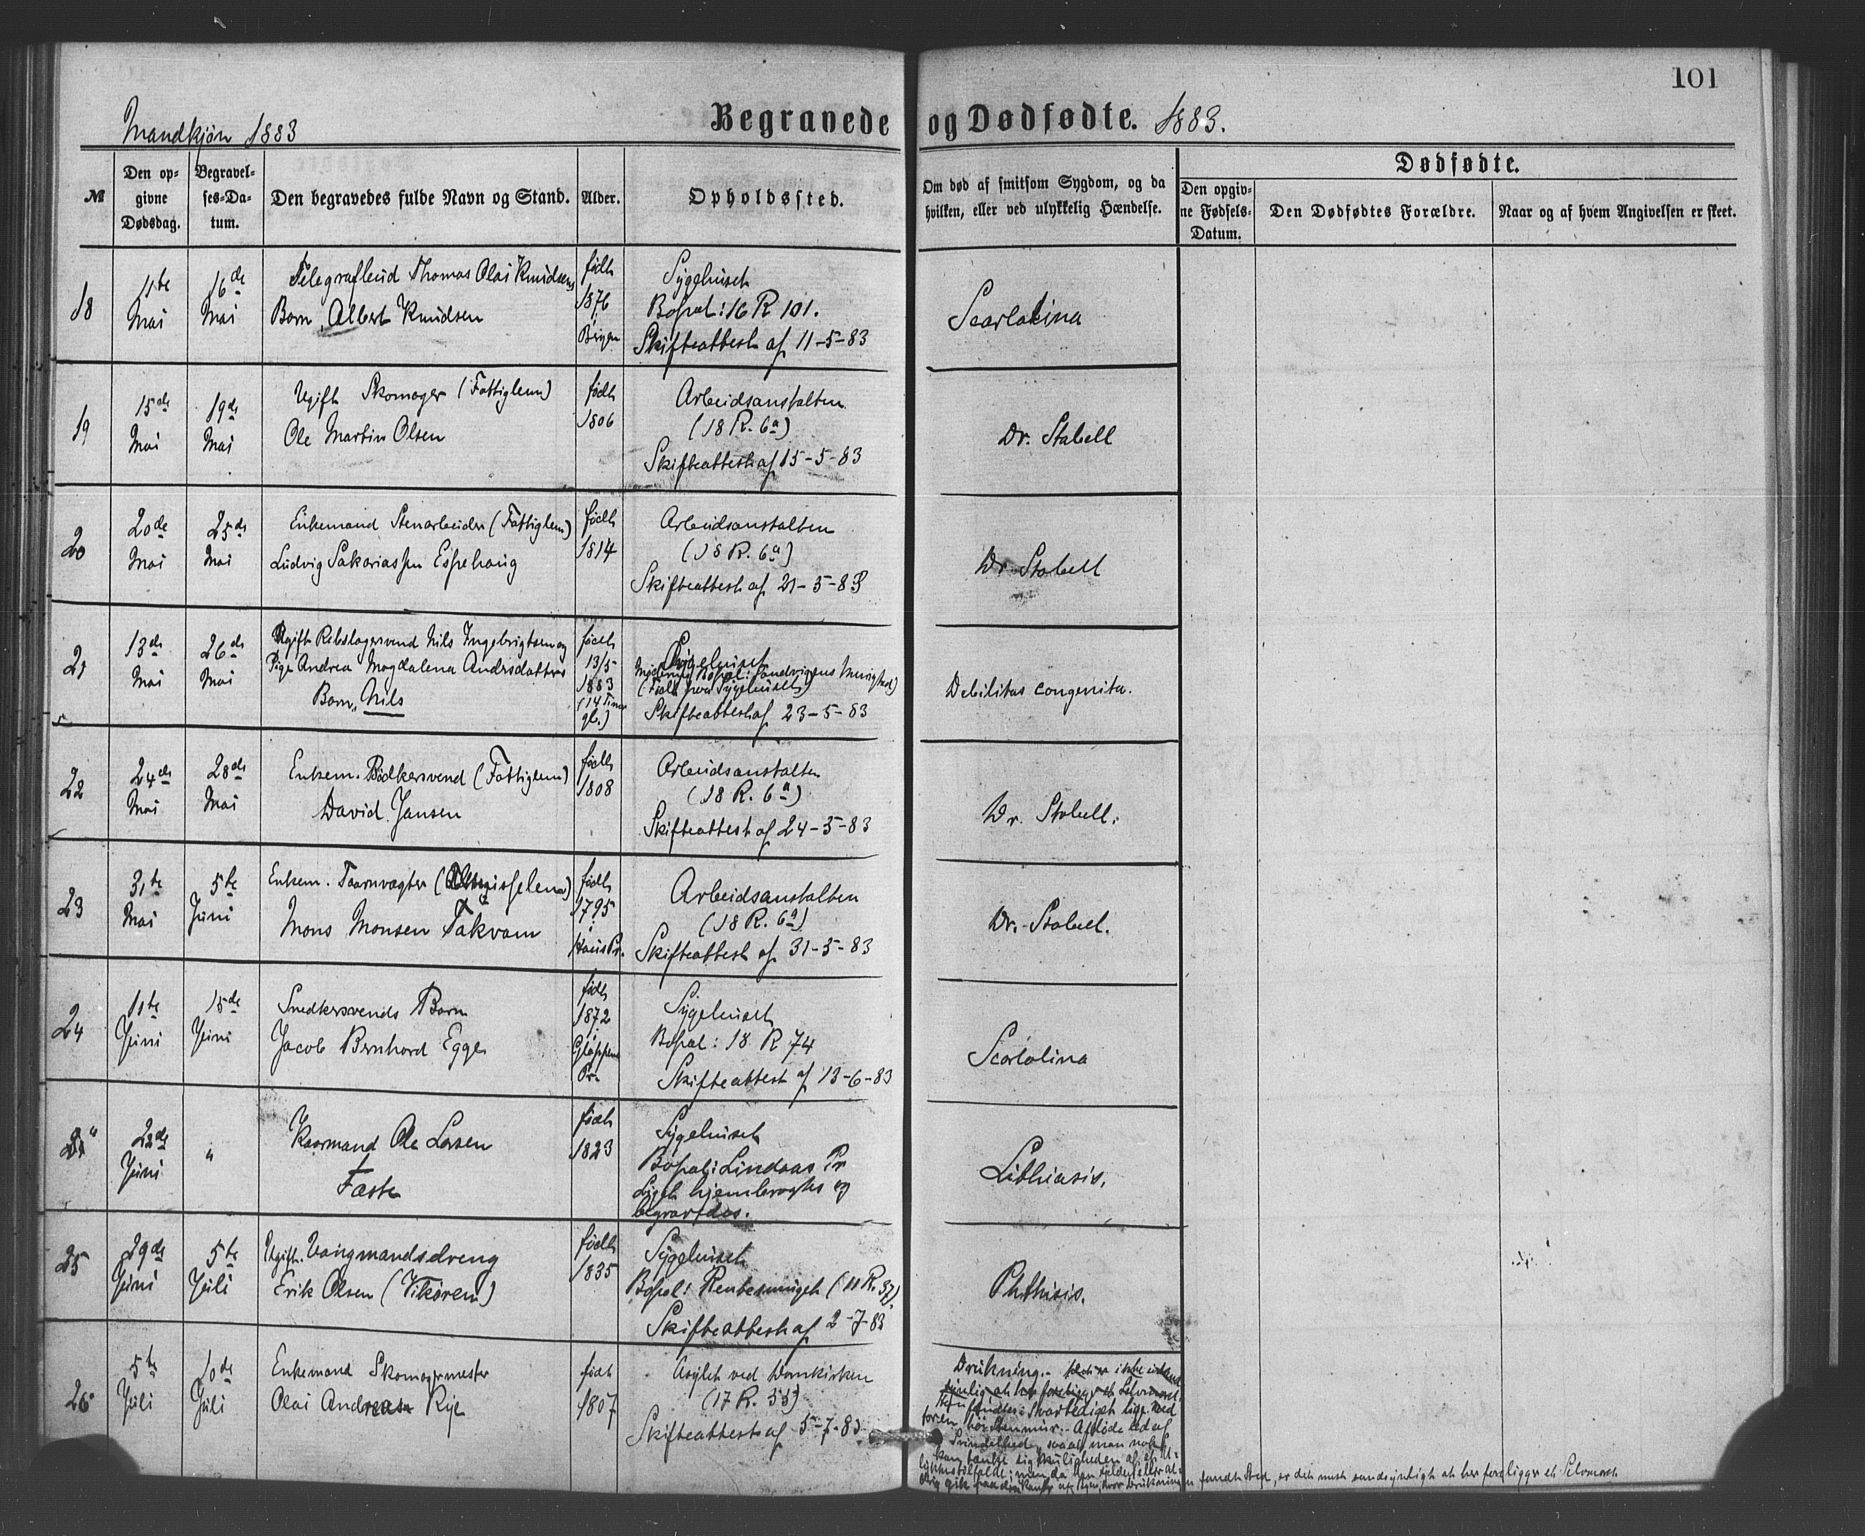 101
Mandkjøn 1883
Begravede og Dødfødte. 1883.
№
Den op-
givne
Dødsdag.
Begravel-
ses-Da-
tum.
Den begravedes fulde Navn og Stand.
Alder.
Opholdssted.
Om død af smitsom Sygdom, og da
hvilken, eller ved ulykkelig Hændelse.
Dødfødte.
Den opgiv-
ne Fødsels-
Datum.
Den Dødfødtes Forældre.
Naar og af hvem Angivelsen er skeet.
18
11te
Mai
16de
Mai
Telegrafbud Thomas Olai Knudsens
Barn, Albert Knudsen
født
1876
i
Bergen
Sygehuset
Bopæl: 16 R 101.
Skifteattest af 11-5-83
Scarlatina
19
15de
Mai
19de
Mai
Ugift Skomager (Fattiglem)
Ole Martin Olsen
født
1806
Arbeidsanstalten
(18 R. 6a)
Skifteattest af 15-5-83
Dr. Stabell
20
20de
Mai
25de
Mai
Enkemand Stenarbeider (Fattiglem)
Ludvig Sakariassen Espehaug
født
1814
Arbeidsanstalten
(18 R. 6a)
Skifteattest af 21-5-83
Dr Stabell
21
13de
Mai
26de
Mai
Ugift Rebslagersvend Nils Ingebrigtsen og
Pige Andrea Magdalena Andrsdatters
Barn, Nils
født
13/5
1883
(14 Timer
gl.)
Sygehuset
Skifteattest af 23-5-83
Debilitas congenita.
22
24de
Mai
28de
Mai
Enkem. Bødkersvend (Fattiglem)
David Jansen
født
1808
Arbeidsanstalten
(18 R. 6a)
Skifteattest af 24-5-83
Dr. Stabell.
23
31te
Mai
5te
Juni
Enkem. Taarnvægter
Mons Monsen Takvam
født
1795
i
Haus Pr.
Arbeidsanstalten
(18 R. 6a)
Skifteattest af 31-5-83
Dr. Stabell.
24
11te
Juni
15de
Juni
Snedkersvends Barn
Jacob Bernhard Egge
født
1872
i
Gloppen
Pr.
Sygehuset
Bopæl: 18 R 74
Skifteattest af 13-6-83
Scarlatina
22de
Juni
"
Kaarmand Ole Larsen
Fæste
født
1823
Sygehuset
Bopæl: Lindaas Pr
Liget hjembragtes og
begravedes.
Lithiasis.
25
29de
Juni
5te
Juli
Ugift. Vongmandsdreng
Erik Olsen (Vikøren)
født
1835
Sygehuset
Bopæl: Rentesmuget (11 R. 37).
Skifteattest af 2-7-83
Phthisis.
26
5te
Juli
10de
Juli
Enkemand Skomagermester
Olai Andreas Rye
født
1807
Asylet ved Domkirken
(17 R. 55)
Skifteattest af 5-7-83
Drukning. det er ikke
at her foreligger et Selvmord.
fundt Sted, er det mest sandsynligt at her foreligger et Selvmord